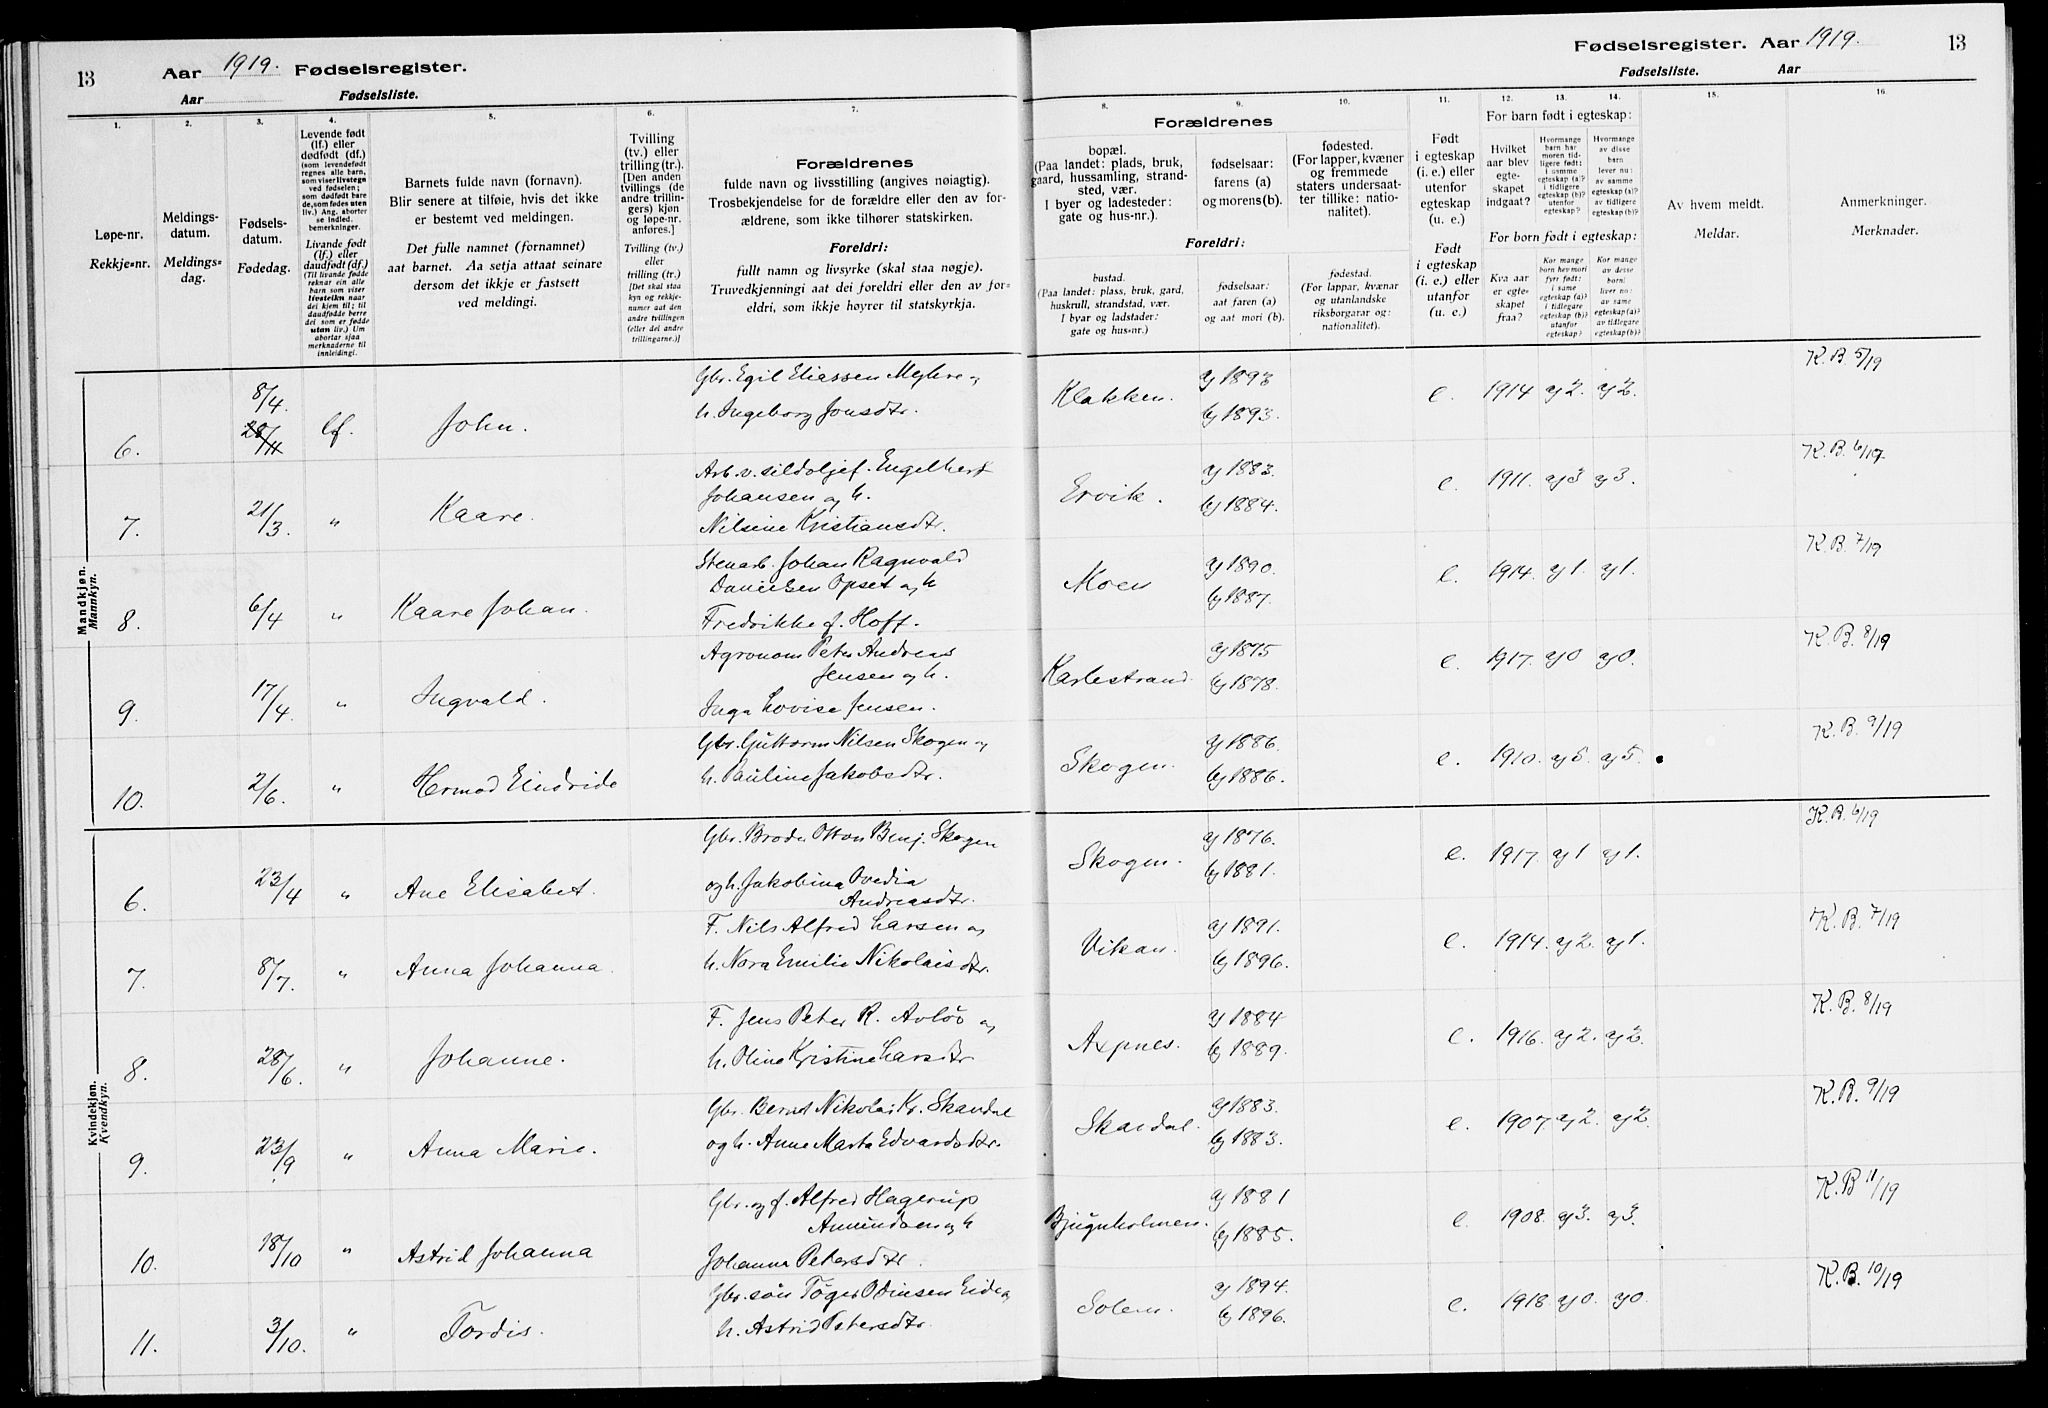 13 Aar 1919. Fødselsregister.
Aar Fødselsliste.
Fødselsregister. Aar 1919. 13
Fødselsliste. Aar
1. 2. 3. 4. 5. 6. 7.
Løpe-nr.
Rekkje=nr.
Meldings-
datum.
Meldings=
dag.
Fødsels-
datum.
Fødedag.
Levende født
(lf.) eller
dødfødt (df.)
(som levendefødt
regnes alle barn,
som viser livstegn
ved fødselen;
som dødfødt bare
de, som fødes uten
liv.) Ang. aborter
se indled.
bemerkninger.
Livande født
(lf.) eller
daudfødt (df.)
(Til livande fødde
reknar ein alle
born som viser
livsteikn naar
dei kjem til; til
daudfødde berre
dei som er fødde
utan liv.) Um
abortar sjaa
merknaderne til
innleidingi.
Barnets fulde navn (fornavn).
Blir senere at tilføie, hvis det ikke
er bestemt ved meldingen.
Det fulle namnet (fornamnet)
aat barnet. Aa setja attaat seinare
dersom det ikkje er fastsett
ved meldingi.
Tvilling
(tv.) eller
trilling (tr.).
[Den anden
tvillings (de
andre trillin-
gers) kjøn
og løpe-nr.
anføres.]
Tvilling (tv.)
eller
trilling (tr.)
[Det skal staa
kyn og rekkje-
numer aat den
andre tvillingen
(eller dei andre
trillingarne.)]
Forældrenes
fulde navn og livsstilling (angives nøiagtig).
Trosbekjendelse for de forældre eller den av for-
ældrene, som ikke tilhører statskirken.
Foreldri:
fullt namn og livsyrke (skal staa nøgje).
Truvedkjenningi aat dei foreldri eller den av for-
eldri, som ikkje høyrer til statskyrkja.
8. 9. 10. 11. 12. 13. 14. 15. 16.
Forældrenes
bopæl.
(Paa landet: plads, bruk,
gaard, hussamling, strand-
sted, vær.
I byer og ladesteder:
gate og hus-nr.)
fødselsaar:
farens (a)
og morens (b).
fødested.
(For lapper, kvæner
og fremmede
staters undersaat-
ter tillike: natio-
nalitet).
Foreldri:
bustad.
(Paa landet: plass, bruk, gard,
huskrull, strandstad, vær.
I byar og ladstader:
gate og hus=nr.)
fødselsaar:
aat faren (a)
og aat mori (b).
fødestad.
(For lappar, kvænar
og utanlandske
riksborgarar og:
nationalitet).
Født
i egteskap
(i. e.) eller
utenfor
egteskap
(u. e.)
Født
i egteskap
(i. e.) eller
utanfor
(u. e.)
For barn født i egteskap:
Hvilket
aar blev
egte-
skapet
indgaat?
Hvormange
barn har
moren tid-
ligere født:
i samme
egteskap (a)?
i tidligere
egteskap (b)?
utenfor
egteskap?
Hvormange
av disse
barn
lever nu:
av samme
egteskap (a)?
av tidligere
egteskap (b)?
For born født i egteskap:
Kva aar
er egte-
skapet
fraa?
Kor mange
born hev mori
fyrr født:
i same
egteskap (a)?
i tidlegare
egteskap (b)?
utanfor
egteskap?
Kor mange
av desse
born
liver no:
av same
egteskap (a)?
av tidlegare
egteskap (b)?
Av hvem meldt.
Meldar.
Anmerkninger.
Merknader.
Mandkjøn.
Mannkyn.
6. 8/4. 28/11 lf. John. Gbr. Egil Eliassen Myhre og
h. Ingeborg Jonsdtr. Klakken. a) 1893 b) 1893. e. 1914 a) 2. a) 2. K. B 5/19
7. 21/3. " Kaare. Arb. v. sildoljef. Engelhert
Johansen og h.
Nilsine Kristiansdtr. Ervik. a) 1883. b) 1884. e. 1911. a) 3 a) 3. K. B. 6/19
8. 6/4 " Kaare Johan. Stenarb. Johan Ragnvald
Danielsen Opset og h
Fredrikke f. Hoff. Moen a) 1890. b) 1887. e. 1914. a) 1. a) 1. K. B. 7/19
9. 17/4. " Ingvald. Agronom Peter Andreas
Jensen og h.
Inga Lovise Jensen. Karlestrand a) 1875 b) 1878. e. 1917. a) 0 a) 0. K. B. 8/19
10. 2/6. " Hermod Eindride Gbr. Guttorm Nilsen Skogen og
h. Pauline Jakobsdtr. Skogen. a) 1886. b) 1886. e. 1910. a) 5. a) 5. K. B. 9/19
Kvindekjøn.
Kvendkyn.
6. 23/4 " Ane Elisabet. Gbr. Broder Otton Benj. Skogen
og h. Jakobina Ovedia
Andreasdtr. Skogen. a) 1876. b) 1881. e. 1917. a) 1 a) 1. K. B. 6/19
7. 8/7. " Anna Johanna. F. Nils Alfred Larsen og
h. Nora Emilie Nikolaisdtr. Vikan. a) 1891. b) 1896. e. 1914. a) 2. a) 1. K. B. 7/19
8. 28/6. " Johanne. F. Jens Peter R. Avløs og
h. Oline Kristine Larsdtr Axpnes. a) 1884 b) 1889. e. 1916. a) 2. a) 2. K. B. 8/19
9. 23/9 " Anna Marie. Gbr. Bernt Nikolai Kr. Skardal
og h. Anne Marta Edvardsdtr. Skardal. a) 1883. b) 1883. e. 1907. a) 2. a) 2. K. B. 9/19
10. 18/10 " Astrid Johanna Gbr. og f. Alfred Hagerup
Amundsen og h
Johanna Petersdtr. Bjugnholmen. a) 1881 b) 1885. e. 1908. a) 3. a) 3. K. B 11/19
11. 3/10. " Tordis. Gbr. søn Tøger Odinsen Eide og
h. Astrid Petersdtr. Solem. a) 1894. b) 1896. e. 1918. a) 0. a) 0. K. B. 10/19